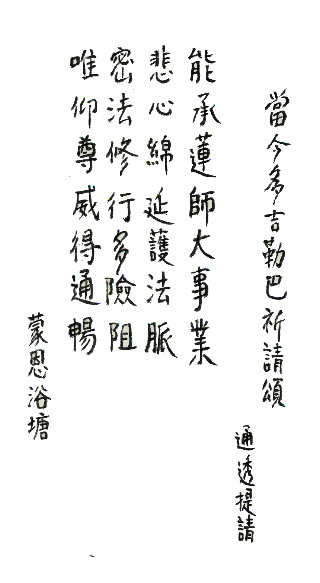 當今多吉勒巴祈請頌
通透提請
能承蓮師大事業
悲心綿延護法脈
密法修行多險阻
唯仰尊威得通暢
蒙恩浴塘